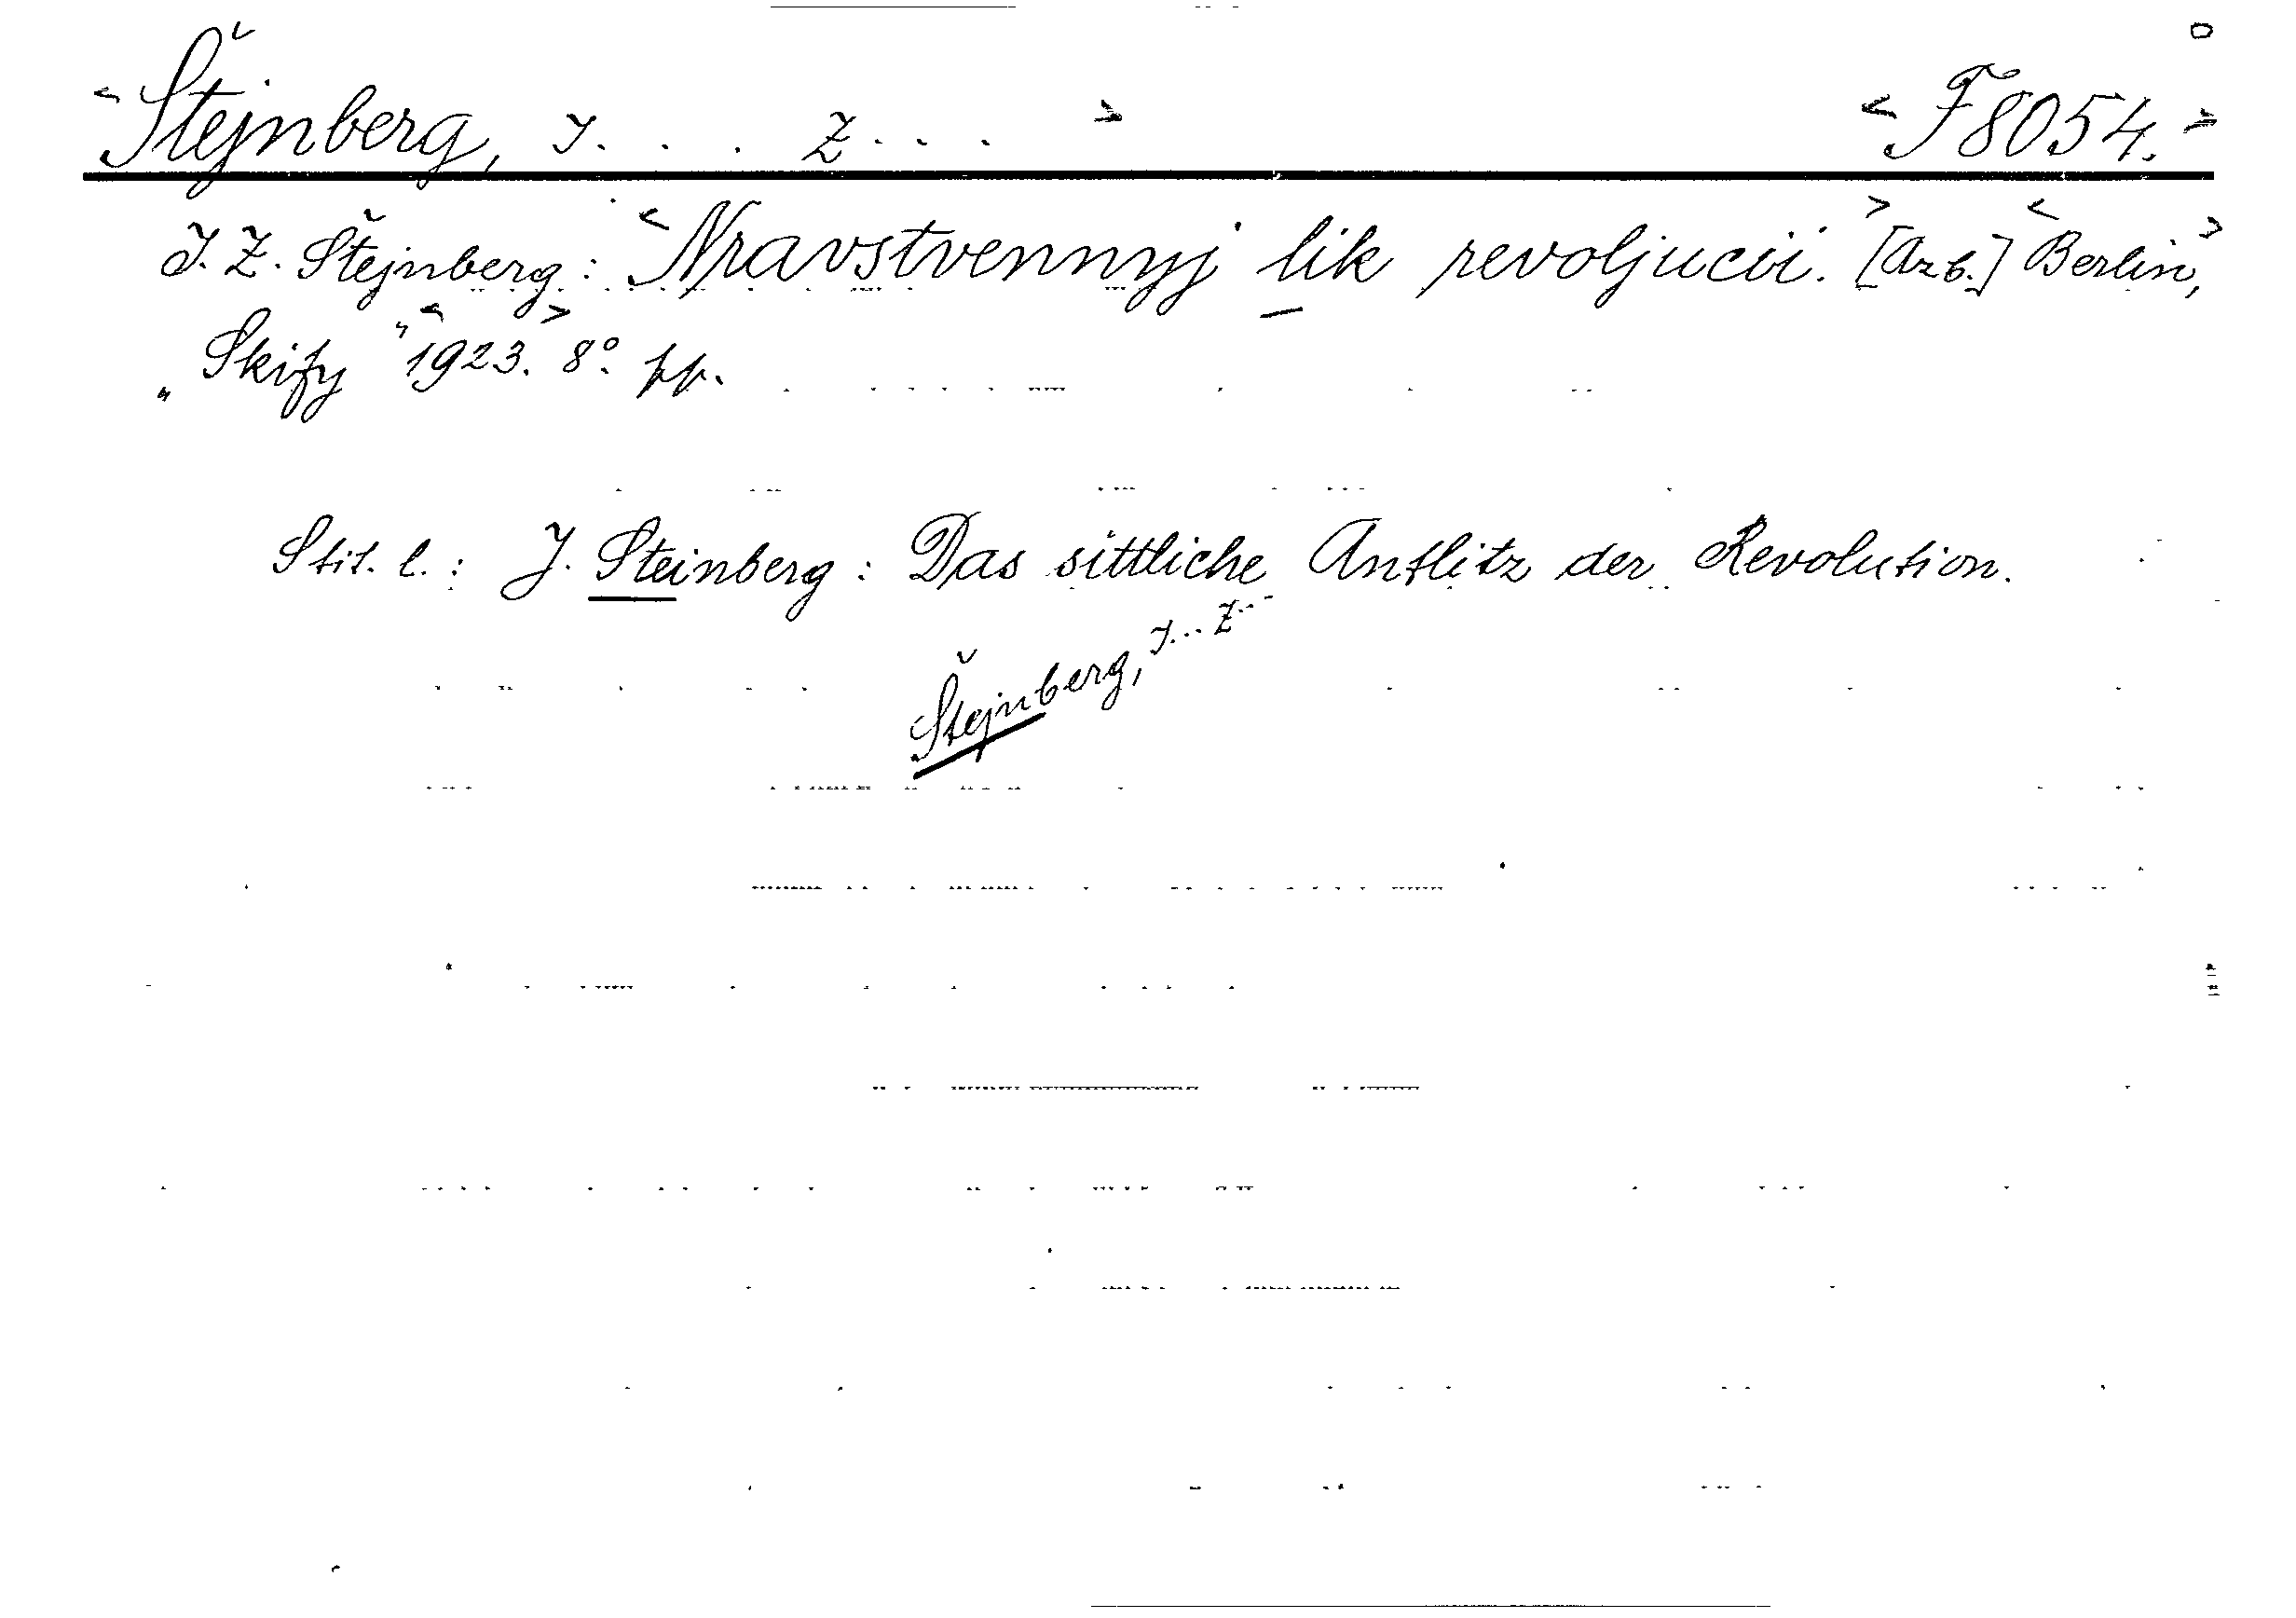 <Štejnberg, J. . . Z. . . > <F8054.>
J. Z. Štejnberg: <Nravstvennyj lik revoljucii.> [Azb.] <Berlin,>
„Skify" <1923.> 8°. pp.
Stit. l.: J. Steinberg: Das sittliche Antlitz der Revolution.
Štejnberg, J... Z...